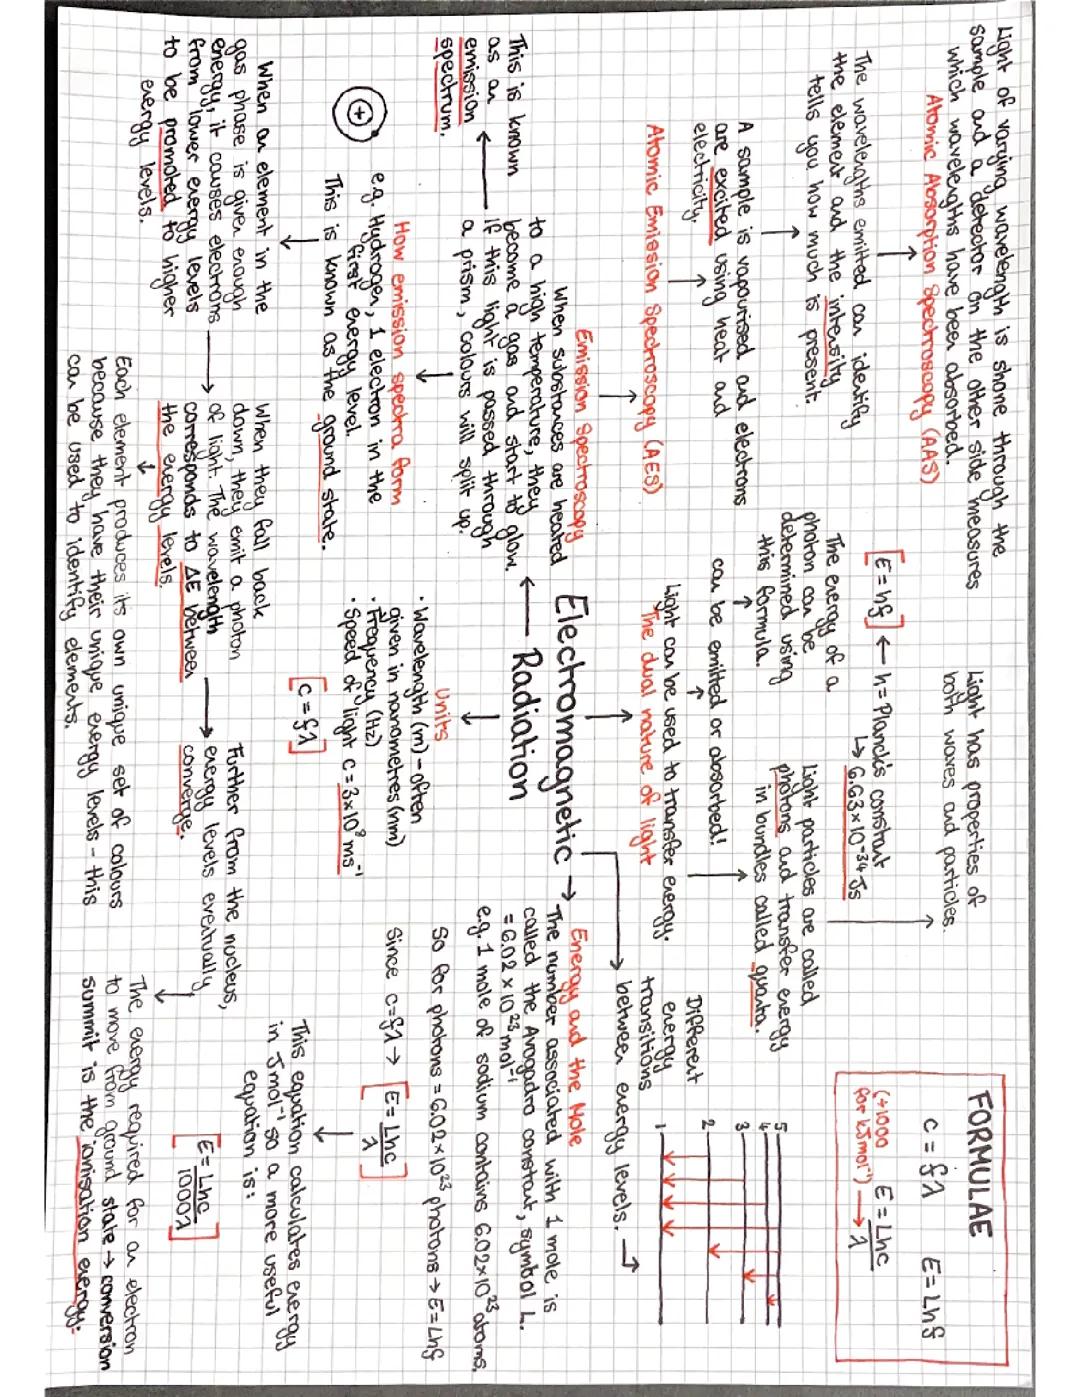 Electromagnetic
Radiation
Light of varying wavelength is shone through the
sample and a detector on the other side measures
which wavelengths have been absorbed.
Atomic Absorption Spectroscopy (AAS)
The wavelengths emitted can identify
the element and the intensity
tells you how much is present.
A sample is vapourised and electrons
are excited using heat and
electricity.
Atomic Emission Spectroscopy (AES)
Emission Spectroscopy
When substances are heated
to a high temperature, they
become a gas and start to glow.
If this light is passed through
a prism, colours will split up.
This is known
as an
emission
spectrum.
How emission spectra form
e.g. Hydrogen, 1 electron in the
first energy level.
This is known as the ground state.
+
When an element in the
gas phase is given enough
energy, it causes electrons
from lower energy levels
to be promoted to higher
energy levels.
When they fall back
down, they emit a photon
of light. The wavelength
corresponds to ΔE between
the energy levels.
Each element produces its own unique set of colours
because they have their unique energy levels - this
can be used to identify elements.
Further from the nucleus,
energy levels eventually
converge.
The energy required for an electron
to move from ground state → conversion
summit is the ionisation energy.
Light has properties of
both waves and particles.
[E = hf] ← h = Planck's constant
↳ 6.63 × 10⁻³⁴ Js
The energy of a
photon can be
determined using
this formula.
Light particles are called
photons and transfer energy
in bundles called quanta.
can be emitted or absorbed!
Light can be used to transfer energy.
The dual nature of light
Units
· Wavelength (m) - often
given in nanometres (nm)
· Frequency (Hz)
· Speed of light c = 3×10⁸ ms⁻¹
[c = fλ]
FORMULAE
c = fλ E = Lhf
(÷1000 E = Lhc
for kJmol⁻¹) → λ
Different
energy
transitions
between energy levels. →
5
4
3
2
1
Energy and the Mole
The number associated with 1 mole is
called the Avogadro constant, symbol L.
= 6.02 × 10²³ mol⁻¹
e.g. 1 mole of sodium contains 6.02×10²³ atoms.
So for photons = 6.02×10²³ photons → E = Lhf
Since c = fλ → [E = Lhc
λ]
This equation calculates energy
in Jmol⁻¹ so a more useful
equation is:
[E = Lhc
1000λ]